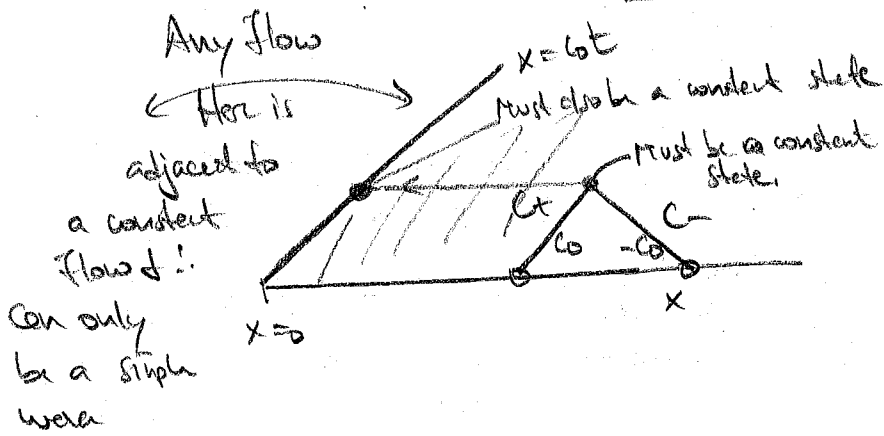 Any Flow
Here is
adjacent to
a constant
Flow &
Can only
be a simple
wave
x = c₀t
Must also be a constant state
Must be a constant
state.
C+
C-
c₀
-c₀
x=0
x